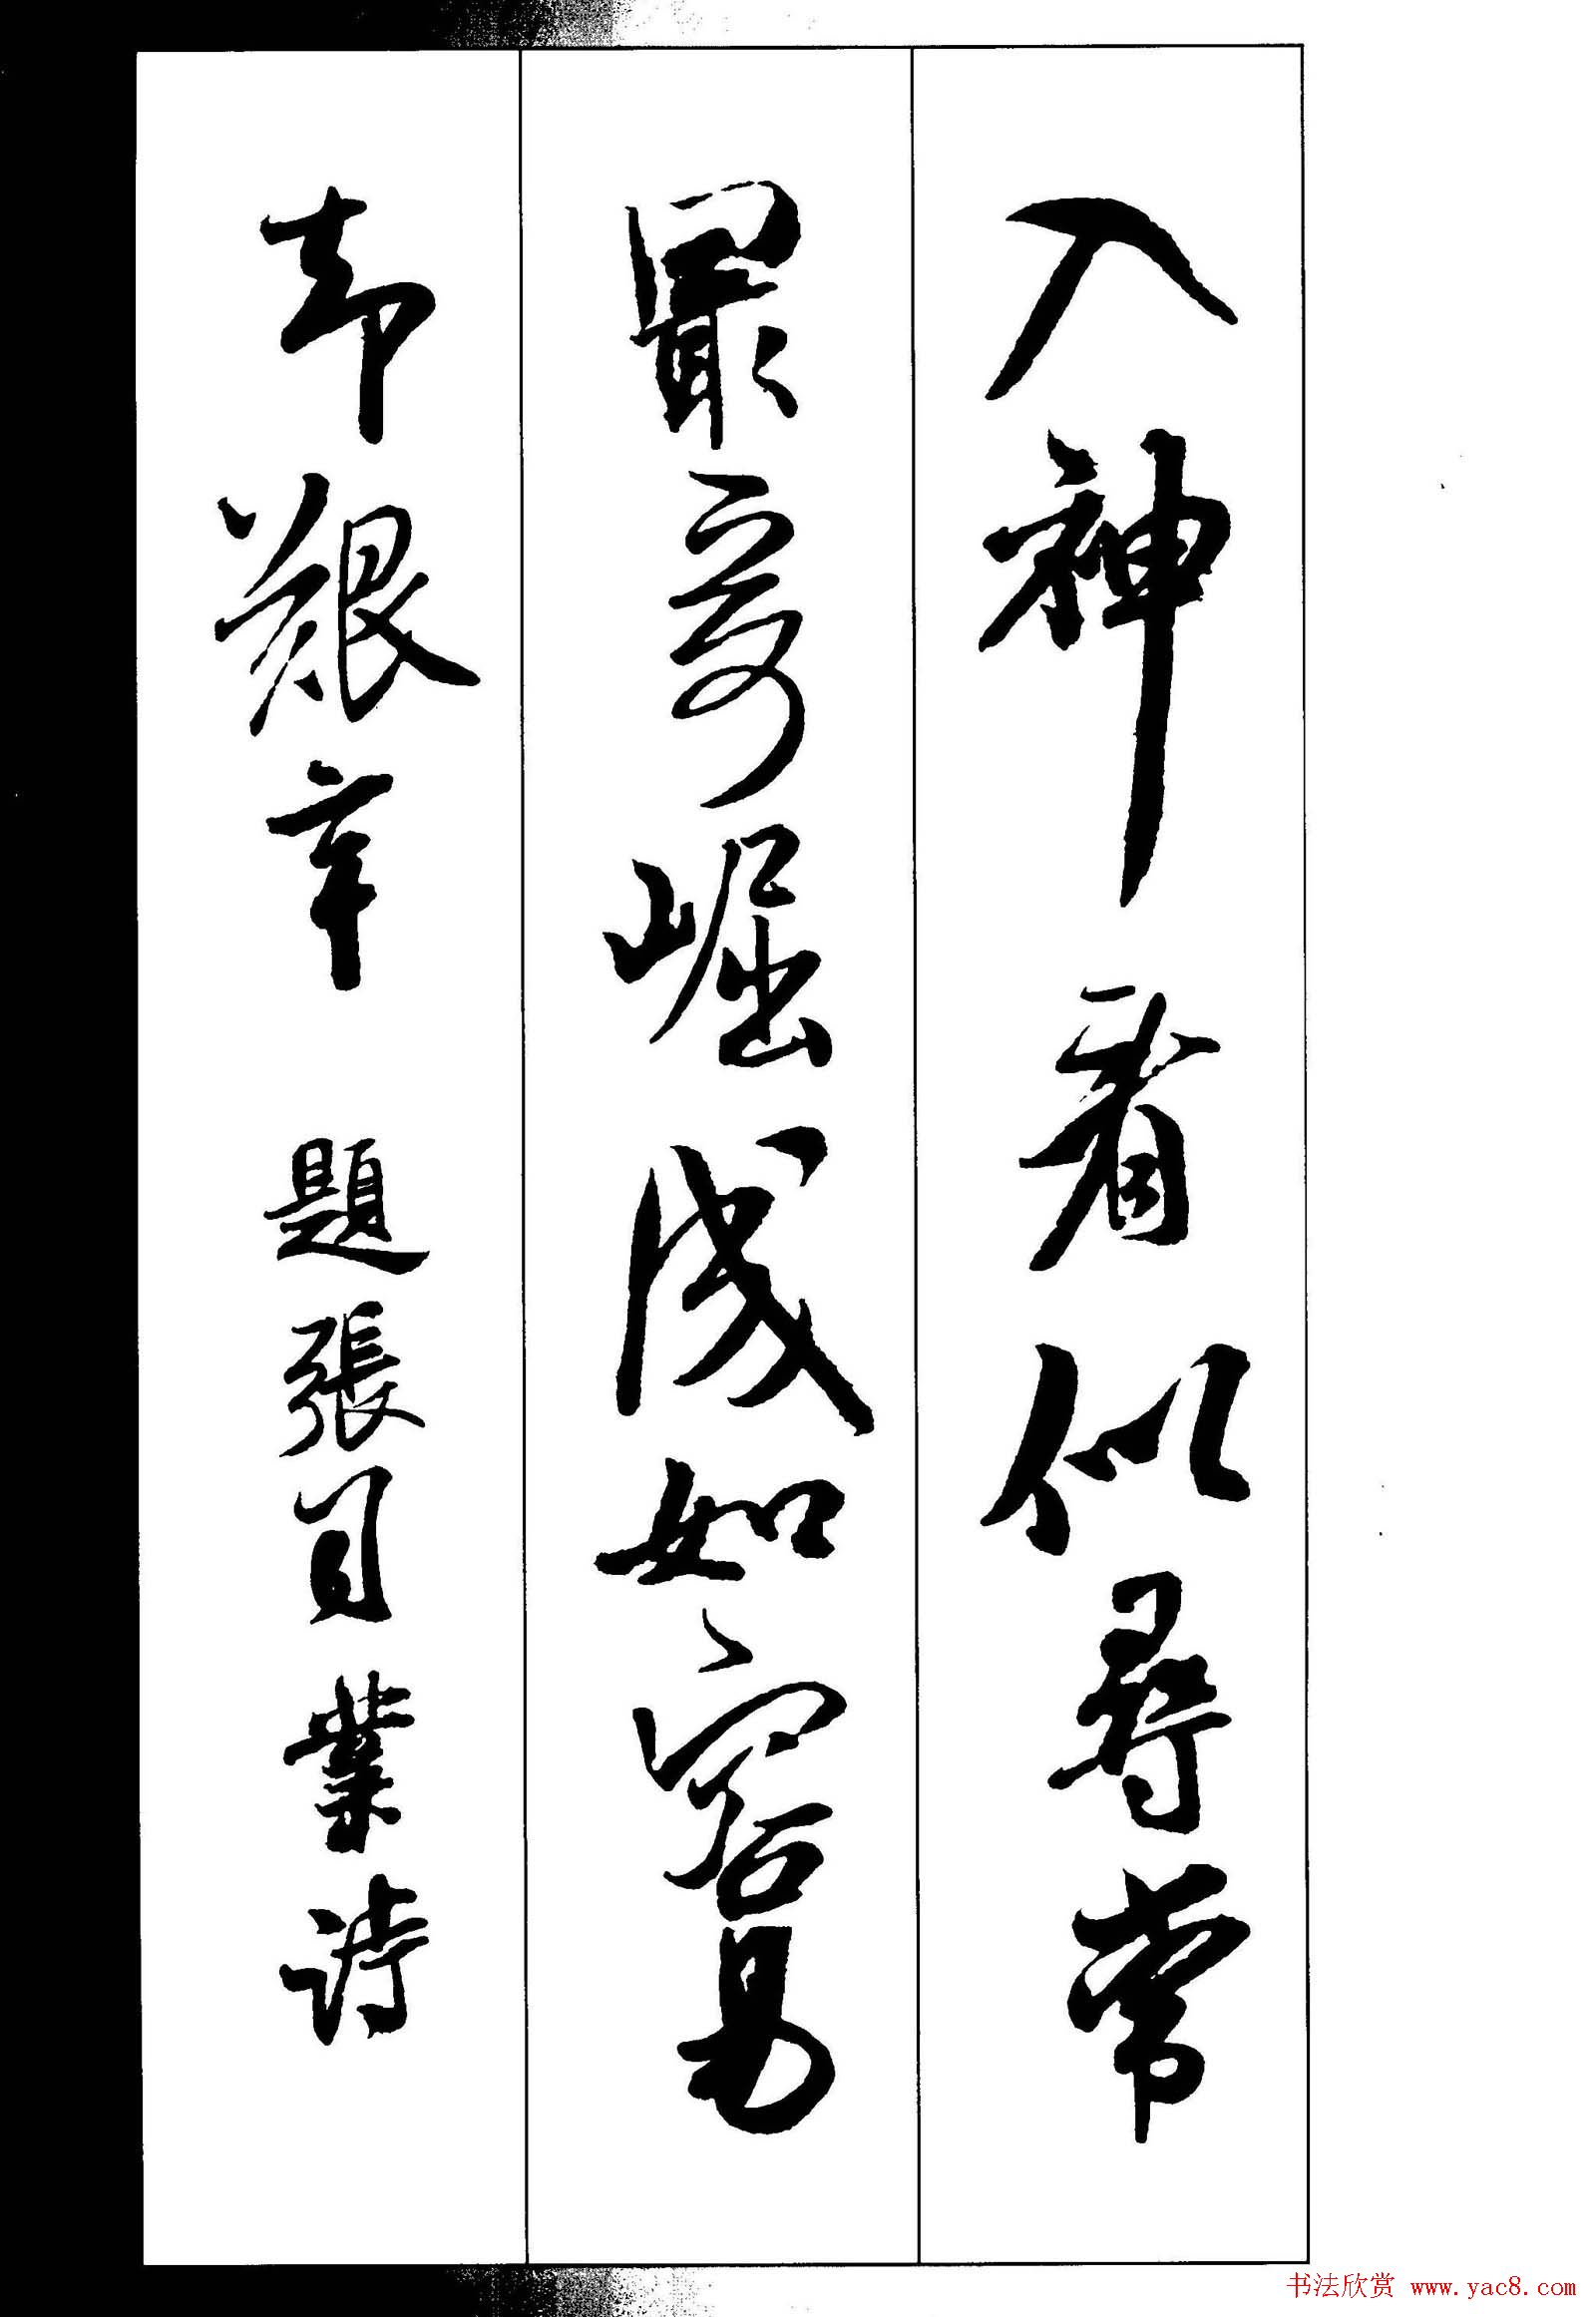 入神看似尋常
最奇崛成如容易
却艱辛 題張司業詩
书法欣赏 www.yac8.com